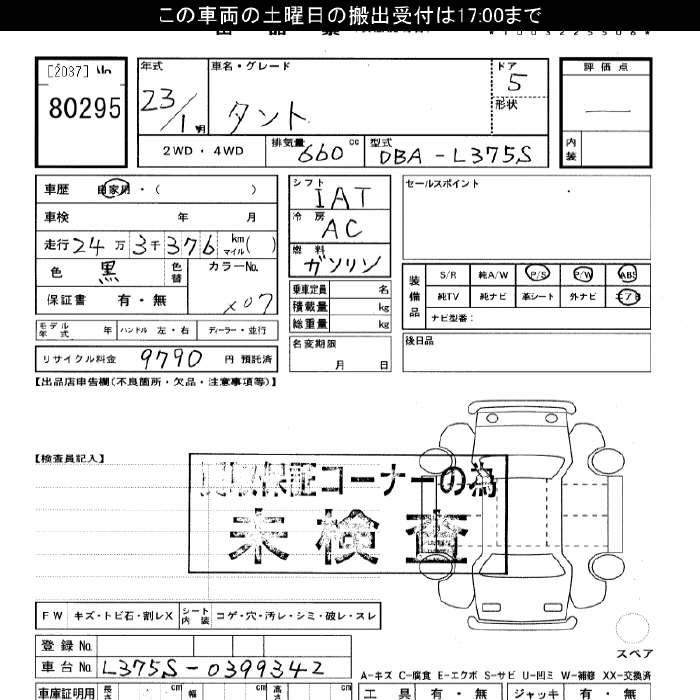 この車両の土曜日の搬出受付は17:00まで
[2037] No
80295
年式 車名・グレード ドア 評価点
23/1 タント 5
形状
2WD・4WD 排気量 660 cc 型式 DBA-L375S 内装
車歴 自家用・( )
車検 年 月
走行 24万3千376 km マイル( )
色 黒 色替 カラーNo. X07
保証書 有・無
シフト IAT
冷房 AC
燃料 ガソリン
乗車定員 名
積載量 kg
総重量 kg
セールスポイント
装備品 S/R 純A/W P/S P/W ABS
純TV 純ナビ 革シート 外ナビ エアB
ナビ型番:
モデル年式 年 ハンドル 左・右 ディーラー・並行
名変期限 月 日
後日品
リサイクル料金 9790 円 預託済
【出品店申告欄(不良箇所・欠品・注意事項等)】
【検査員記入】
保証コーナーの為
未検査
FW キズ・トビ石・割レX シート内装 コゲ・穴・汚レ・シミ・破レ・スレ
スペア
登録No.
車台No. L375S-0399342
A-キズ C-腐食 E-エクボ S-サビ U-凹ミ W-補修 XX-交換済
車庫証明用 長さ cm 幅 cm 高さ cm 工具 有・無 ジャッキ 有・無